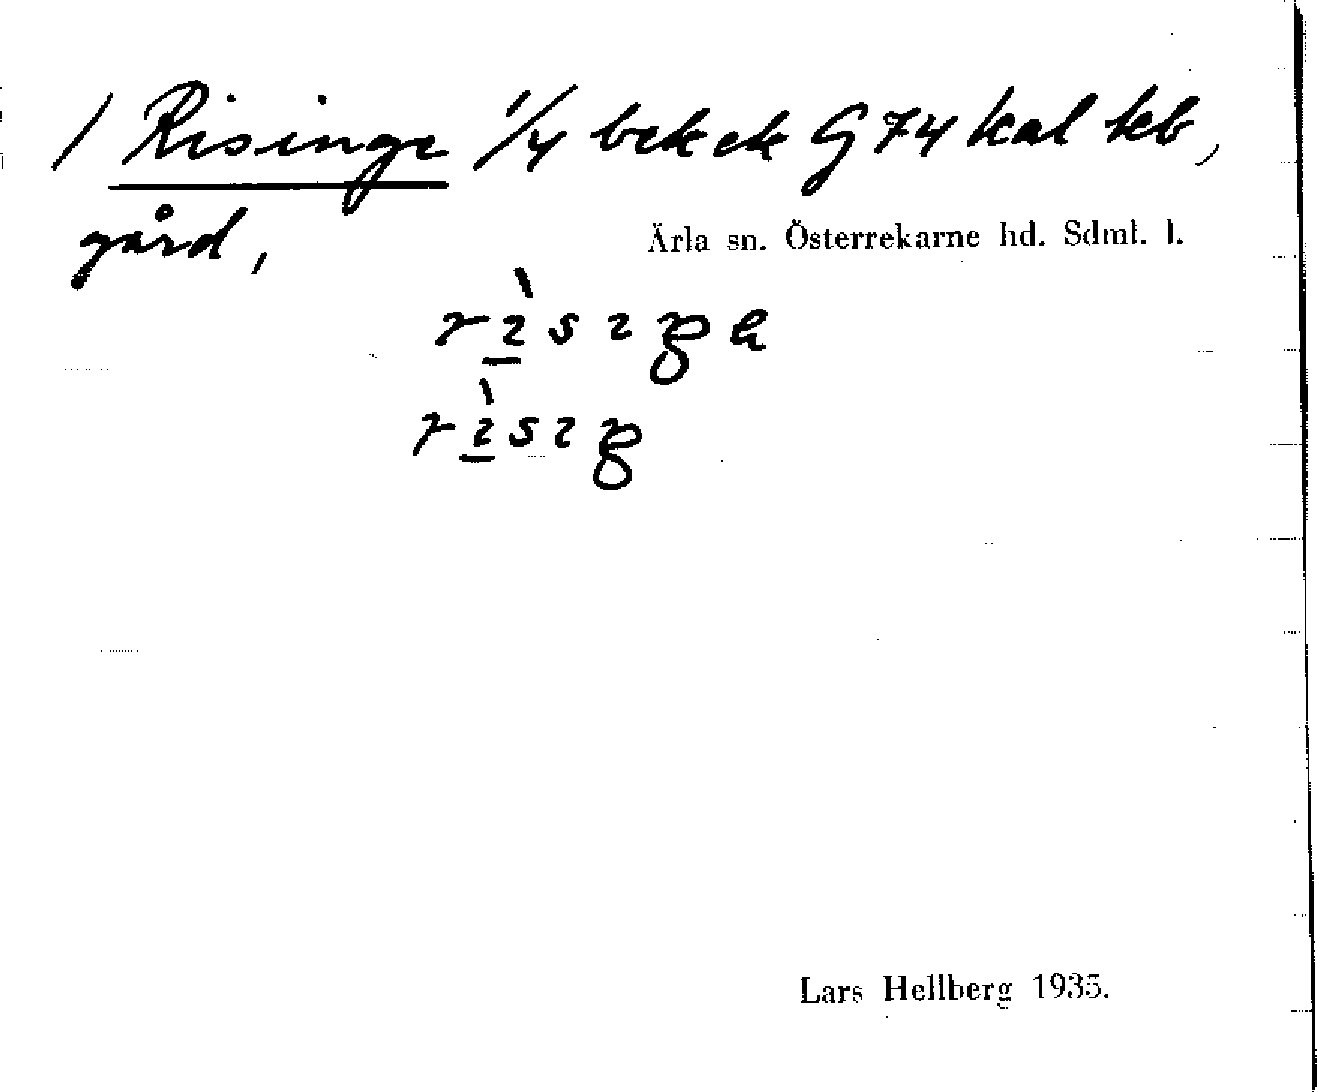 / Risinge 1/4 bek ek G 74 kal kb,
gård,
Ärla sn. Österrekarne hd. Sdml. l.
Lars Hellberg 1935.